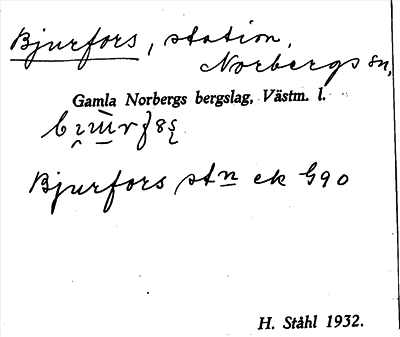 Bjurfors, station,
Norbergs sn,
Gamla Norbergs bergslag, Västm. l.
Bjurfors stn ek G90
H. Ståhl 1932.